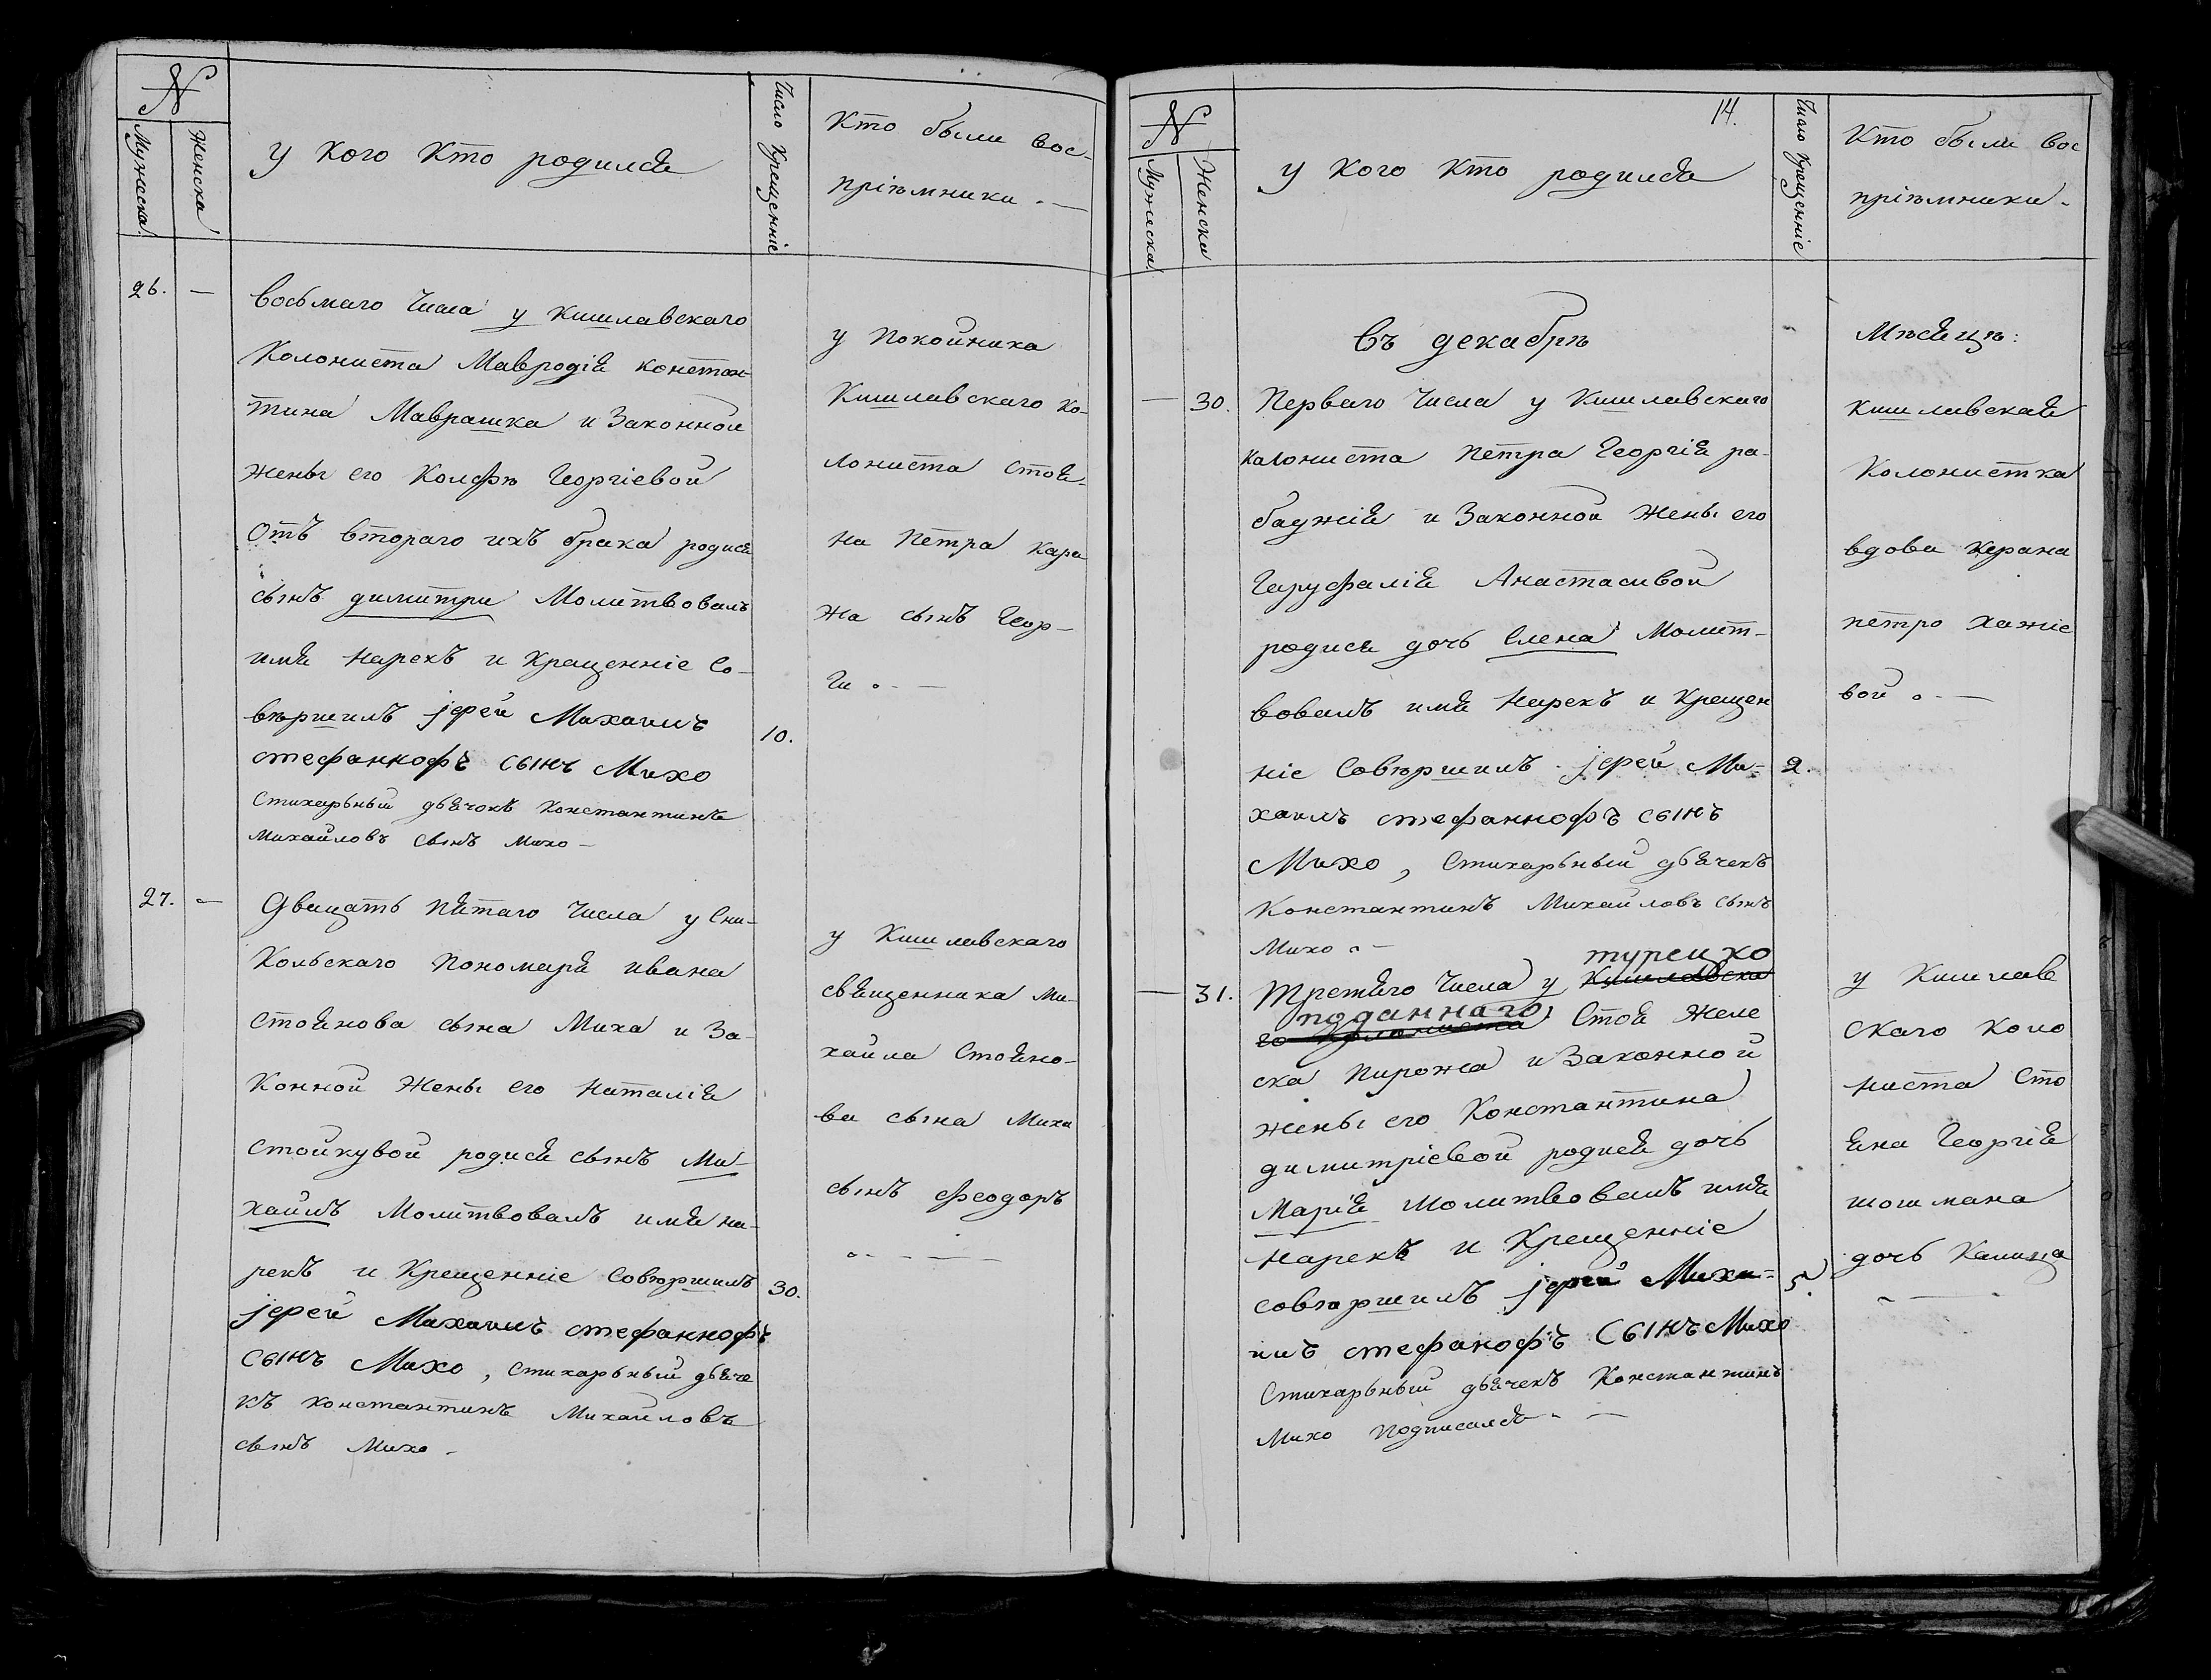 N
Мужеска
Женска
У кого кто родился
Число Крещенніе
Кто были вос-
пріѣмники . —
26. —
восьмаго числа у Кишлавскаго
Колониста Мавродія констан-
тина Маврашка и Законной
жены его Колфѣ Георгіевой
Отъ втораго ихъ брака родися
сынъ димитри Молитвовалъ
имя нарекъ и Кращенніе Со-
вѣршилъ јерей Махаилъ
стефанкофъ сынъ Михо
Стихарьный дьячокъ Константинъ
Михайловъ сынъ Михо —
10.
у покойника
Кишлавскаго ко-
лониста Стоя-
на Петра Кара
жа сынъ Геор-
ги . —
27. —
Двацать пятаго Числа у Сни-
Кольскаго Пономаря ивана
Стоянова сына Миха и За-
Конной Жены его Наталія
Стойкувой родися сынъ Ми-
хаилъ Молитвовалъ имя на-
рекъ и Крещенніе Совѣршилъ
јерей Махаилъ стефанкофъ
сынъ Михо, Стихарьный дьяче
къ Константинъ Михайловъ
сынъ Михо -
30.
у Кишлавскаго
священника Ми-
хаила Стояно-
ва сына Миха
сынъ Феодоръ
14.
N
Мужеска
Женска
У кого кто родился
Число Крещенніе
Кто были вос
пріѣмники -
въ декабрѣ Мѣсяцѣ:
— 30.
Перваго Числа у Кишлавскаго
Калониста Петра Георгія ра-
баджія и Законной Жены его
Гаруфалія Анастасивой
родися дочь Елена Молит-
вовалъ имя Нарекъ и Крещен
ніе Совѣршилъ јерей Ми-
хаилъ стефаннофъ сынъ
Михо, Стихарьный дьячекъ
Константинъ Михайловъ сынъ
Михо . —
2.
Кишлавская
Колонистка
вдова Керана
петро хажіе
вой . —
— 31.
турецко
Третяго Числа у Кишлавска
подданнаго
го Колониста Стоя Желе
ска Пирожа и Законной
жены его Константина
димитріевой родися дочь
Марія Молитвовалъ имя
нарекъ и Крещенніе
совѣршилъ јерей Миха-
илъ стефанофъ сынъ Михо
Стихарьный дьячекъ Константинъ
Михо подписался . —
5.
у Кишлав
скаго Коло
ниста Сто
яна Георгія
шошмана
дочь Калица